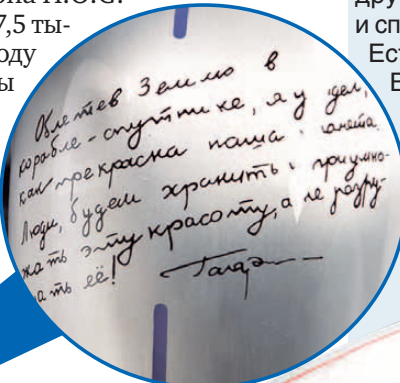 7,5 ты-
Облетев Землю в
корабле-спутнике, я увидел,
как прекрасна наша планета.
Люди, будем хранить и приумно-
жать эту красоту, а не разру-
ать её!
Гагар
и сп
Ест